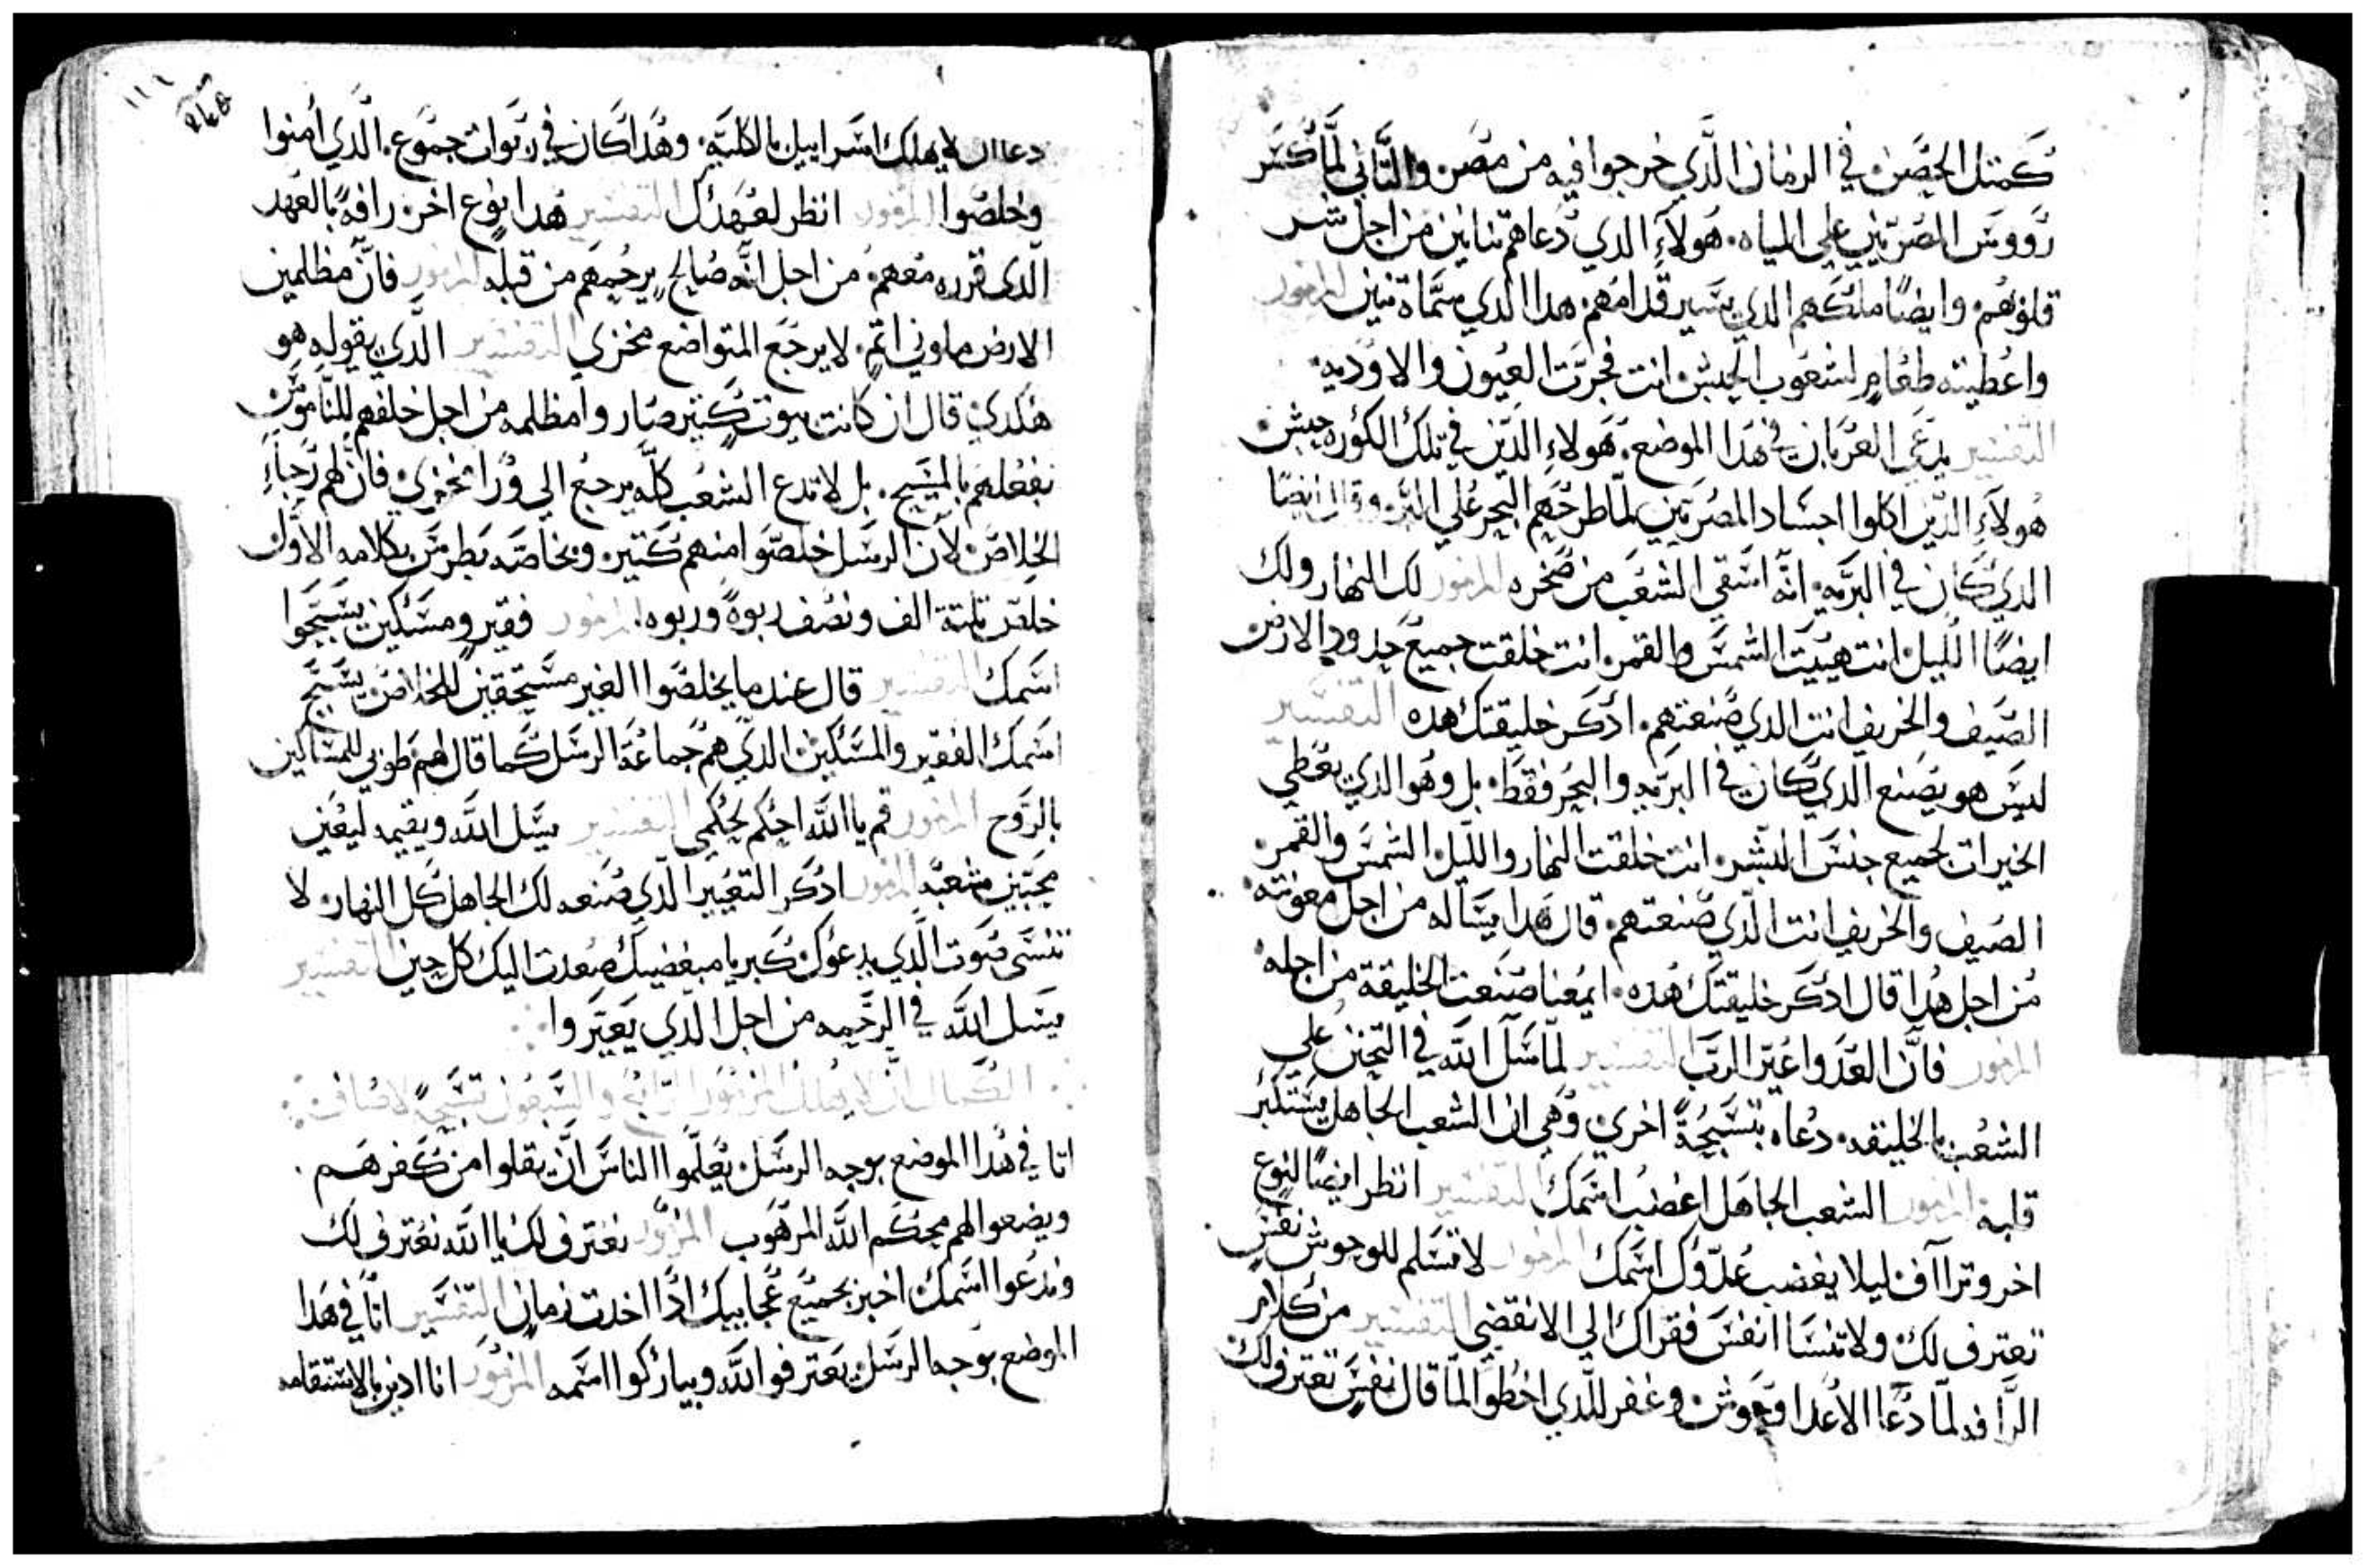 كمتل الحصن في الزمان الذي خرجوا فيه من مصر والتاني لما كسر
رووس المصريين علي المياه. هولاء الذي دعاهم تنانين من اجل شر
قلوبهم وايضًا ملكهم الذي يسير قدامهم هدا الذي سماه تنين المزمور
واعطيته طعام لشعوب الحبش انت فجرت العيون والاوديه.
التفسير يدعي الغربان في هدا الموضع. هولاء الدين في تلك الكوره حبش
هولاء الدين اكلوا اجساد المصريين لما طرحهم البحر علي البر وقال ايضًا
الدي كان في البريه انه اسقي الشعب من صخره المزمور لك النهار ولك
ايضًا الليل انت هييت الشمس والقمر انت خلقت جميع حدود الارض
الصيف والخريف انت الدي صنعتهم. ادكر خليقتك هده التفسير
ليس هو يصنع الدي كان في البريه والبحر فقط. بل وهو الدي يعطي
الخيرات لجميع جنس البشر انت خلقت النهار والليل الشمس والقمر
الصيف والخريف انت الدي صنعتهم. قال هدا يساله من اجل معونته
من اجل هدا قال ادكر خليقتك هده. ايمعنا صنعت الخليقة من اجله
المزمور فان العدوا عير الرب التفسير لما سال الله في التحنن علي
الشعب بالخليقه. دعاه بتسبحة اخري وهي ان الشعب الجاهل يستكبر
قلبه المزمور الشعب الجاهل اغضب اسمك التفسير انظر ايضًا لنوع
اخر وتراآف ليلا يغضب عدوك اسمك المزمور لا تسلم للوحوش نفس
تعترف لك ولا تنسا انفس فقراك الي الانقضي التفسير من كلام
الرافه لما دعا الاعدا وحوش وغفر للدي اخطوا لما قال نفس تعترف لك
١١٦
دعا ان لا يهلك اسراييل بالكلية. وهدا كان في ربوات جموع. الدي امنوا
وخلصوا المزمور انظر لعهدك التفسير هدا نوع اخر رافة بالعهد
الدي قرره معهم من اجل انه صالح يرحمهم من قبله المزمور فان مظلمين
الارض ماوني اتم. لا يرجع المتواضع مخزي التفسير الدي يقوله هو
هكدي قال ان كانت بيوت كتير صاروا مظلمه من اجل خلفهم للناموس
بفعلهم بالمسيح. بل لا تدع الشعب كله يرجع الي ورا مخزي فان لهم رجاء
الخلاص لان الرسل خلصوا منهم كتير وبخاصه بطرس بكلامه الاول
خلص تلتة الف ونصف ربوة وربوه. المزمور فقير ومسكين يسبحوا
اسمك التفسير قال عند ما يخلصوا الغير مستحقين للخلاص يسبح
اسمك الفقير والمسكين الدي هم جماعة الرسل كما قال لهم طوبي للمساكين
بالروح المزمور قم يا الله احكم لحكمي التفسير يسل الله ويقيمه ليعين
محبين شعبه المزمور ادكر التعيير الدي صنعه لك الجاهل كل النهار لا
تنسى صوت الدي يدعوك كبريا مبغضيك صعدت اليك كل حين التفسير
يسل الله في الرحمه من اجل الدي يعيروا
الكمال ان لا يهلك المزمور الرابع والسبعون تسبحة لاصاف
اتا في هدا الموضع بوجه الرسل يعلموا الناس ان يقلوا من كفرهم.
ويضعوا لهم محكم الله المرهوب المزمور نعترف لك يا الله نعترف لك
وندعوا اسمك اخبر بجميع عجاييبك ادا اخدت زمان التفسير اتا في هدا
الموضع بوجه الرسل يعترفوا لله ويباركوا اسمه المزمور انا ادين بالاستقامه